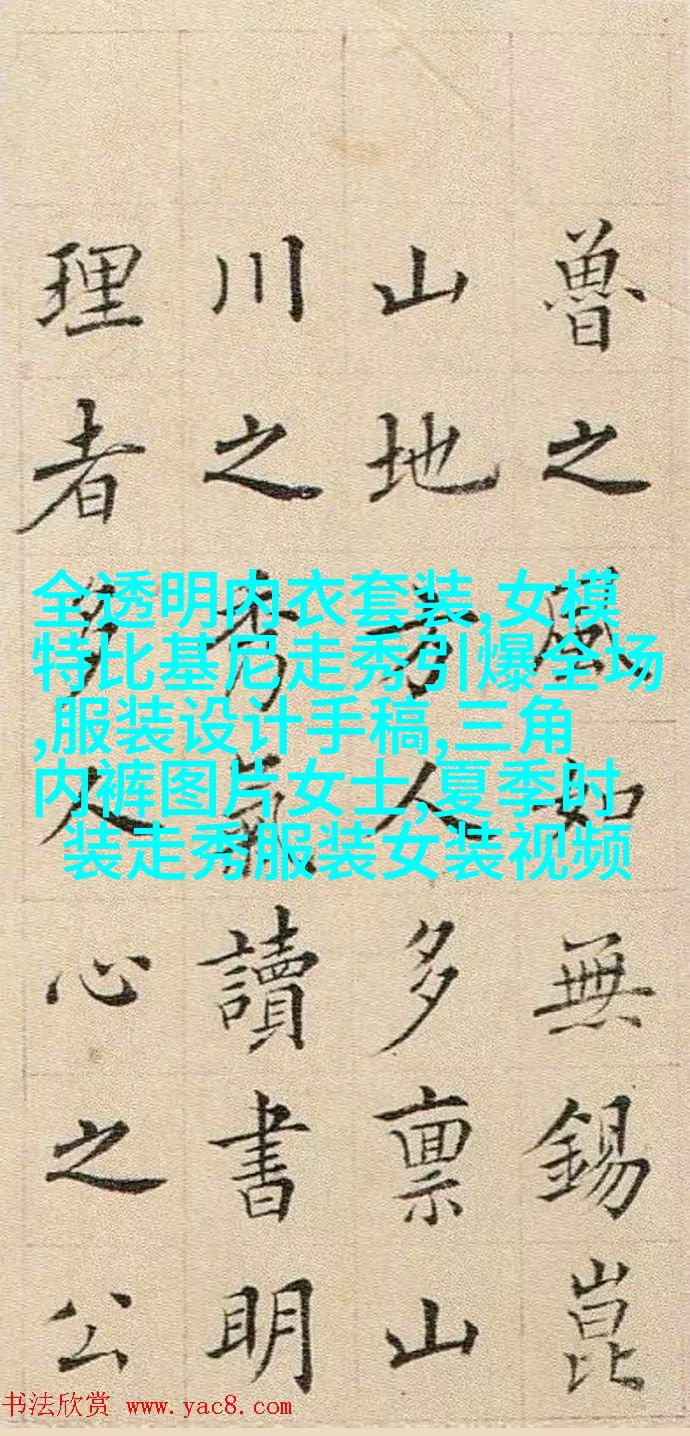 魯之風如無錫崑
山地方人多禀山
川之秀氣讀書明
理者多人心之公
全透明内衣套装,女模
特比基尼走秀引爆全场
,服装设计手稿,三角
内裤图片女士,夏季时
装走秀服装女装视频
书法欣赏 www.yac8.com